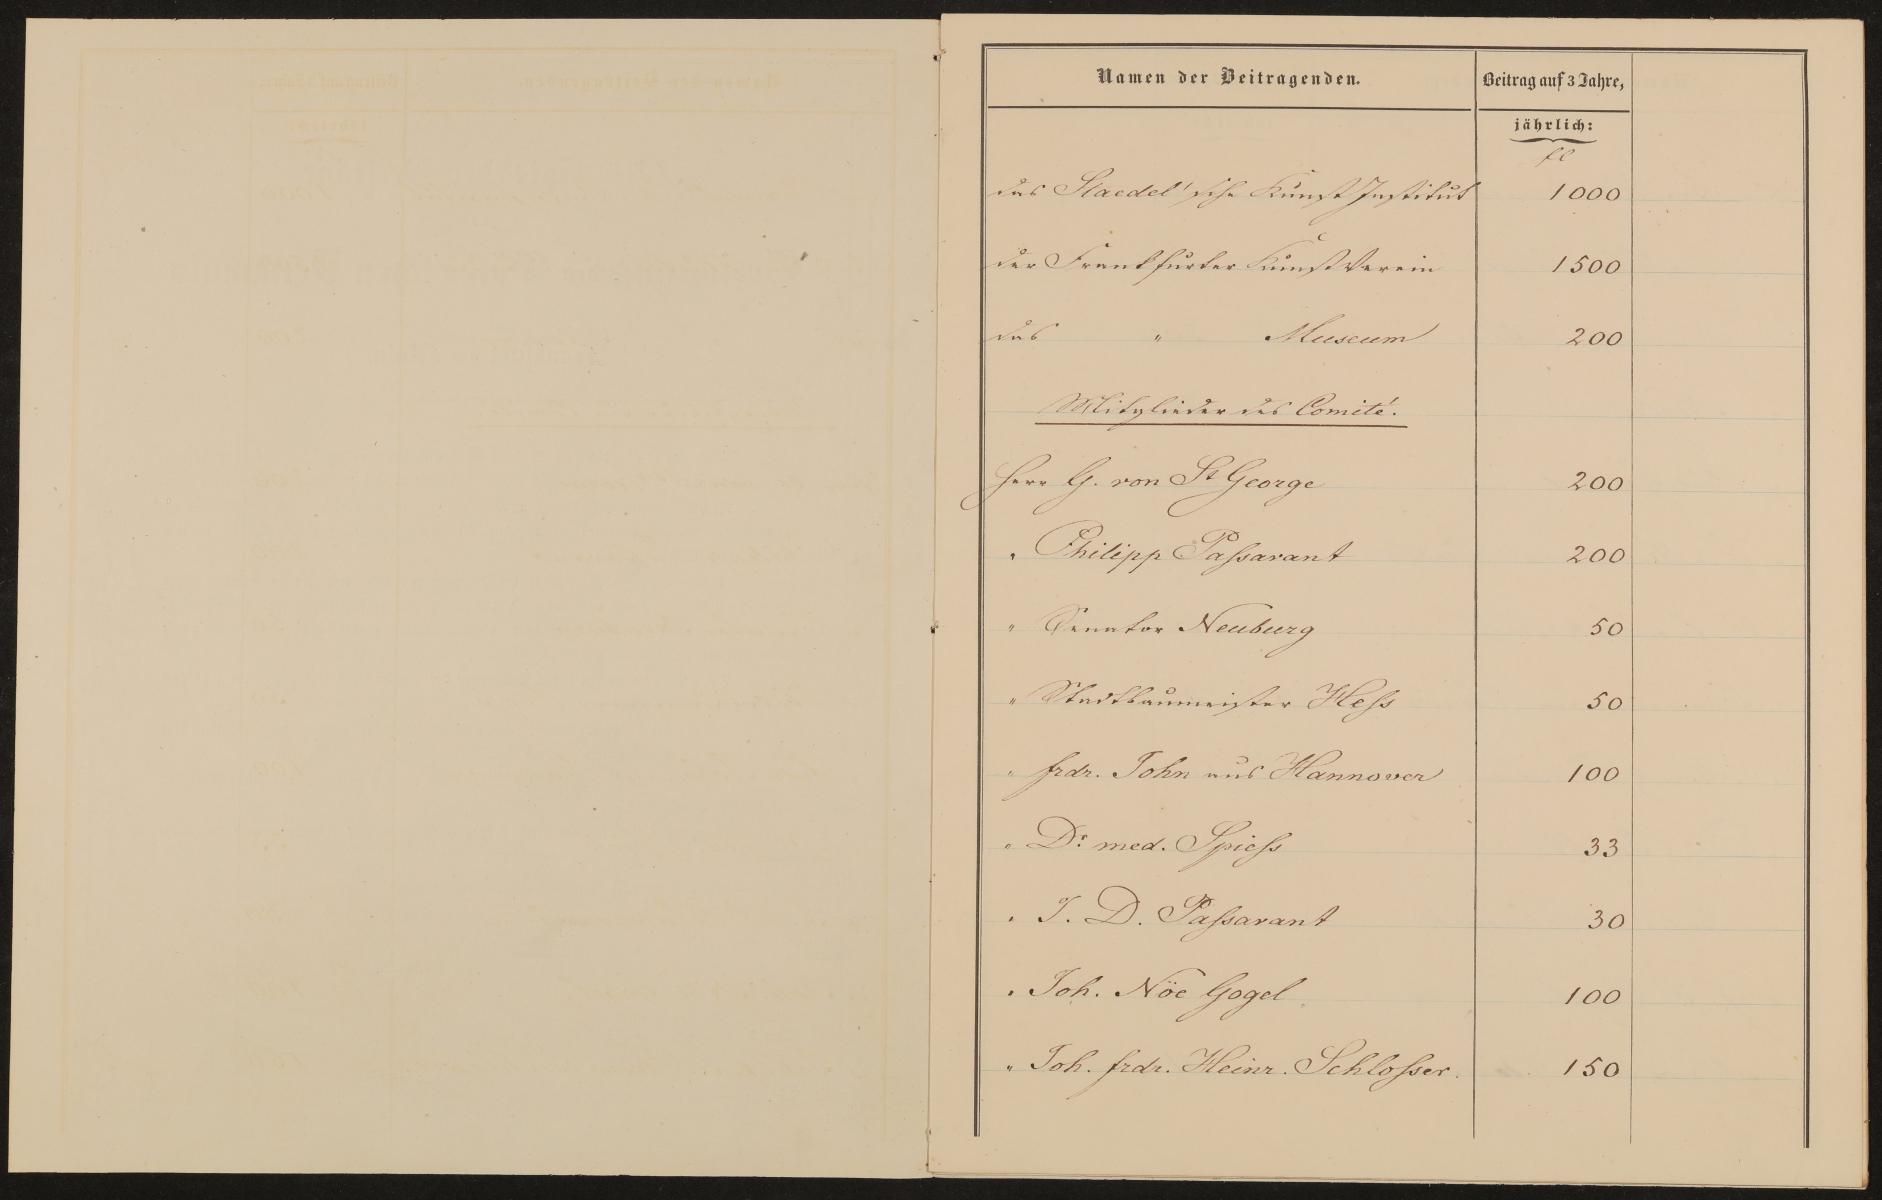 Namen der Beitragenden. Beitrag auf 3 Jahre,
jährlich:
fl
das Staedel'sche Kunst Institut 1000
der Frankfurter Kunst Verein 1500
das " Museum 200
Mitglieder des Comité.
Herr G. von St George 200
" Philipp Passavant 200
" Senator Neuburg 50
" Stadtbaumeister Hess 50
" Frdr. John aus Hannover 100
" Dr. med. Spiess 33
" J. D. Passavant 30
" Joh. Nöe Gogel 100
" Joh. Frdr. Heinr. Schlosser. 150